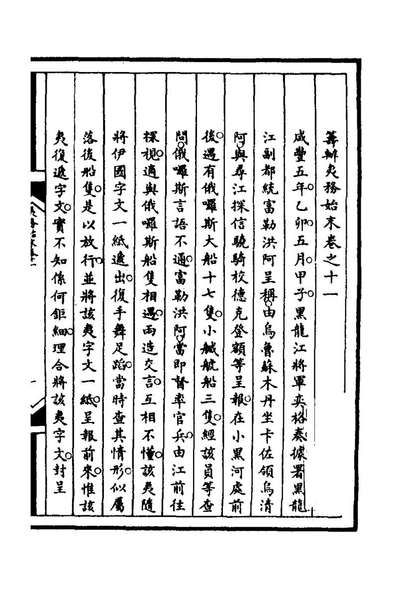 籌辦夷務始末卷之十一
咸豐五年乙卯五月甲子黑龍江將軍奕格奏據署黑龍
江副都統富勒洪阿呈稱由烏魯蘇木丹坐卡佐領烏清
阿與尋江探信驍騎校德克登額等呈報在小黑河處前
後遇有俄囉斯大船十七隻小艉航船三隻經該員等查
問俄囉斯言語不通富勒洪阿當即督率官兵由江前往
探視適與俄囉斯船隻相遇兩造交言互相不懂該夷隨
將伊國字文一紙遞出復手舞足蹈當時查其情形似屬
落後船隻是以放行並將該夷字文一紙呈報前來惟該
夷復遞字文實不知係何鉅細理合將該夷字文封呈